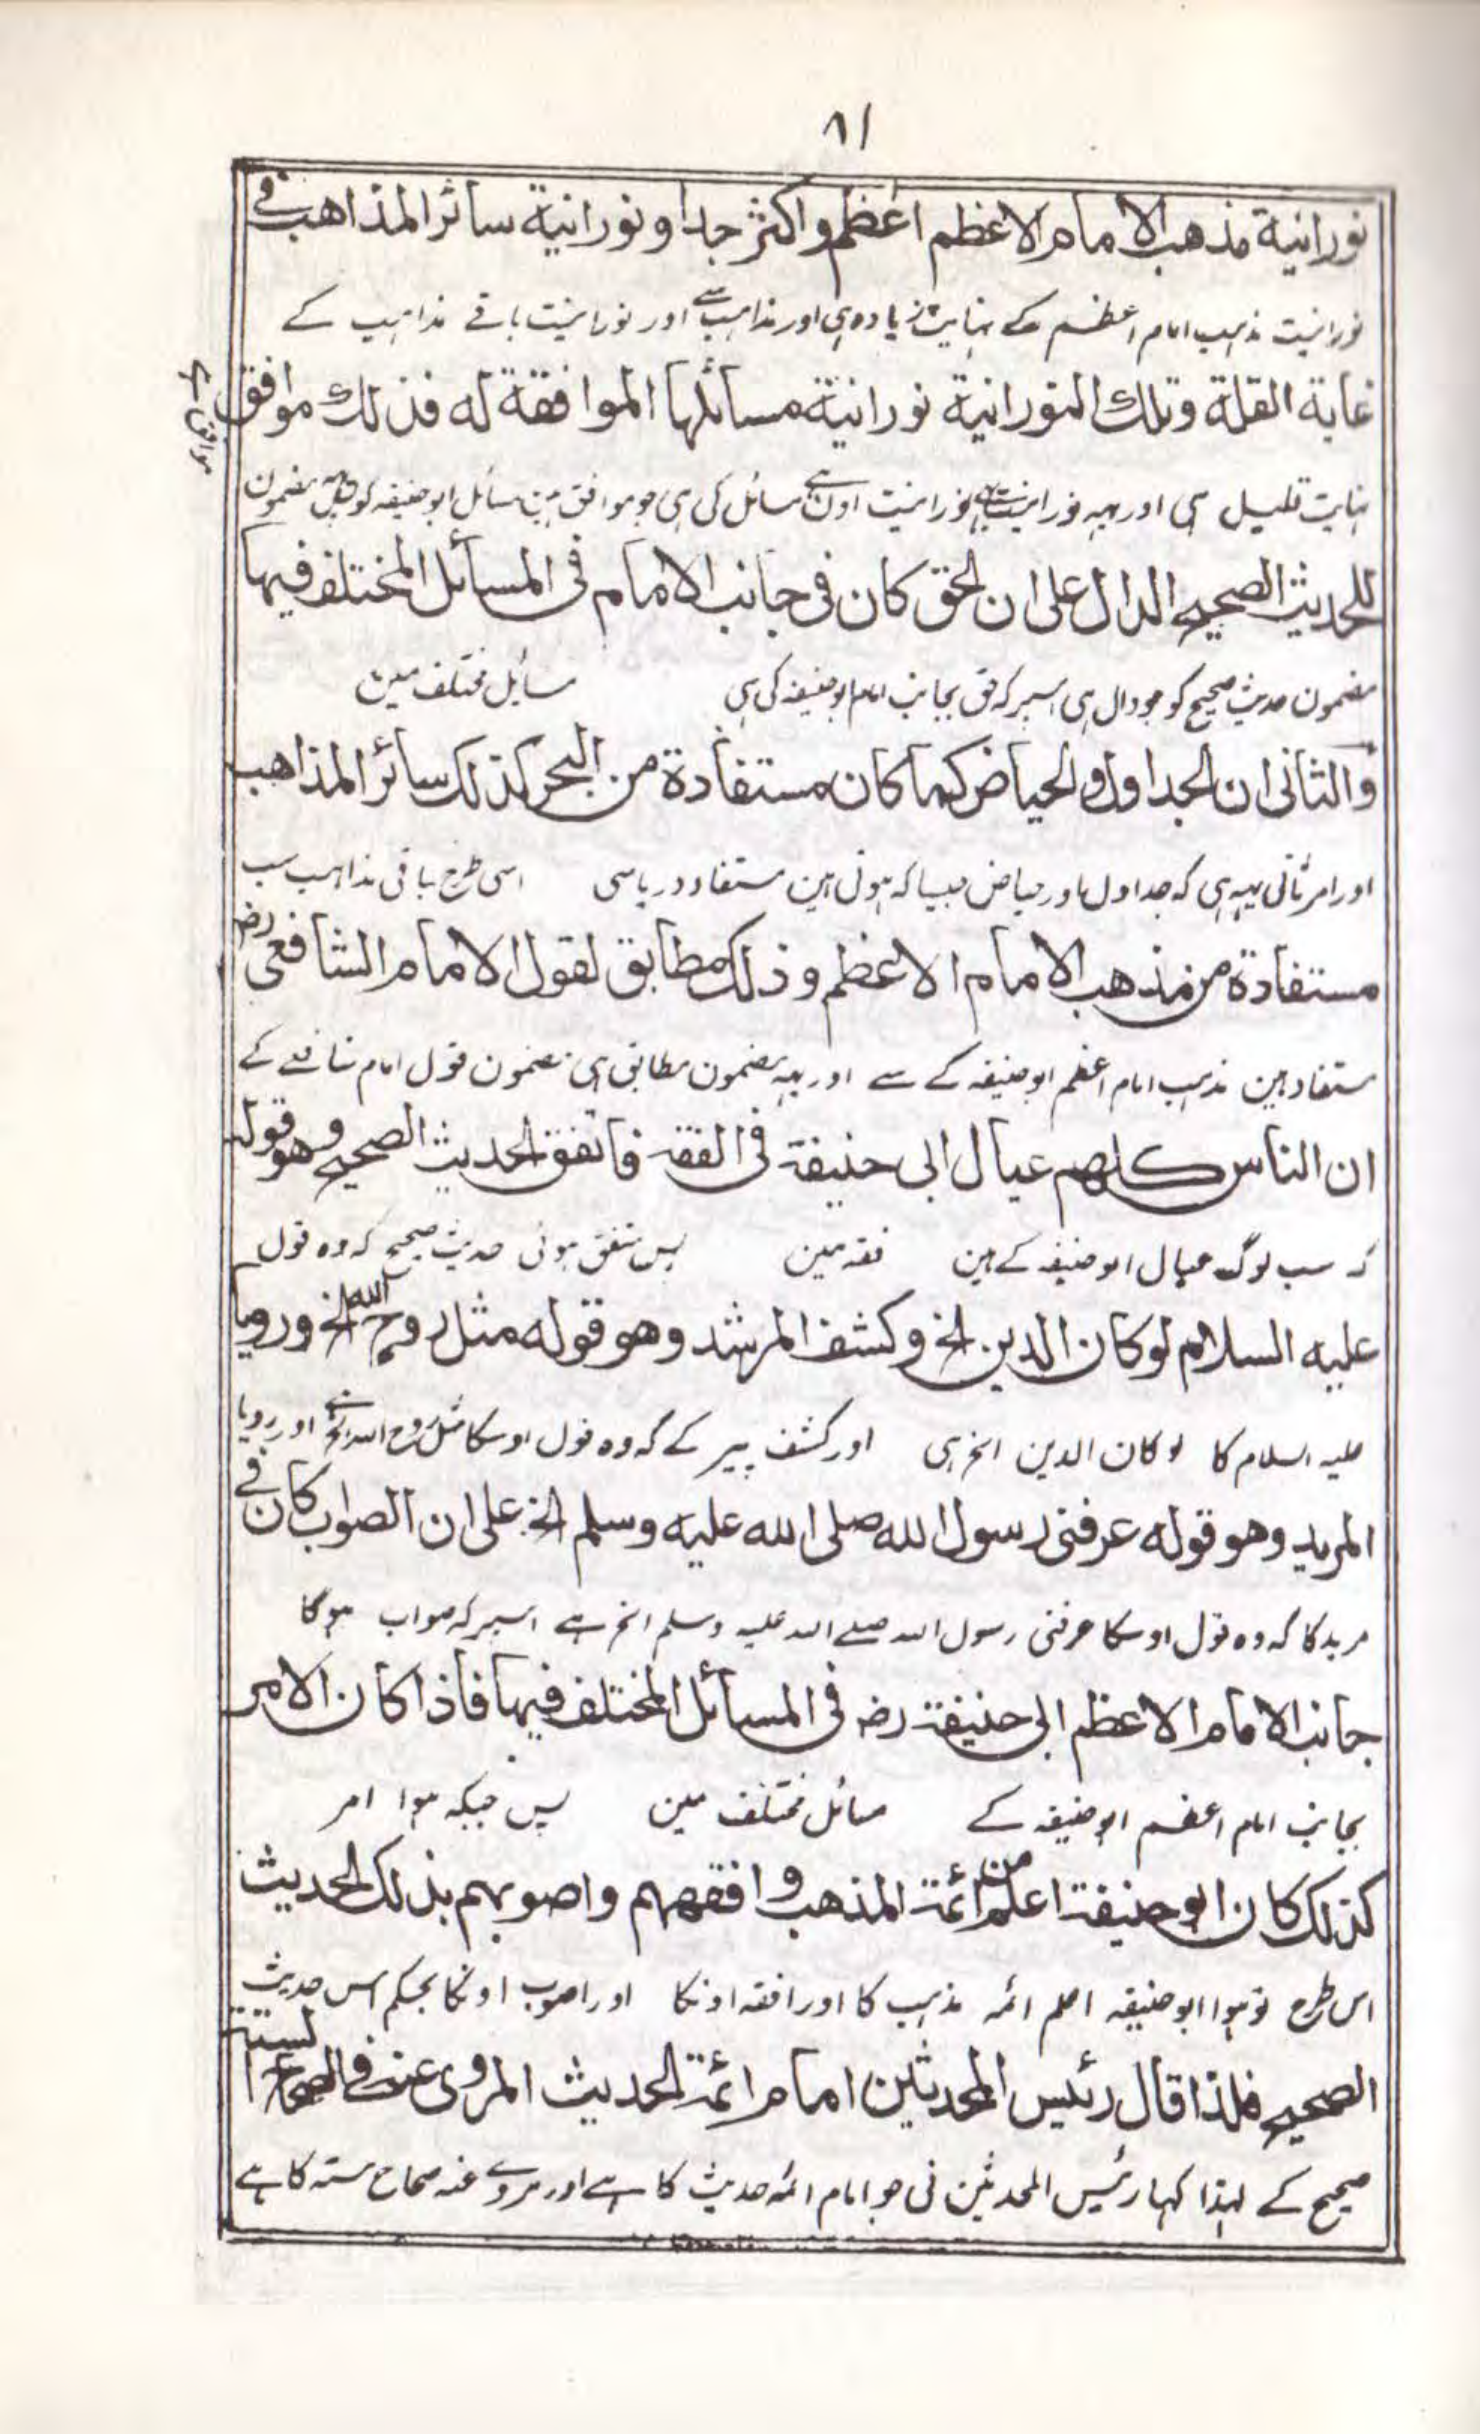 ٨١
نورانية مذهب الامام الاعظم اعظم واكثر جدا ونورانية سائر المذاهب في
نورانیت مذہب امام اعظم کے نہایت زیادہ ہی اور مذاہب سے اور نورانیت باقے مذاہب کے
غاية القلة وتلك النورانية نورانية مسائلها الموافقة له فذلك موافق
موافق ہے
نہایت قلیل ہی اور یہہ نورانیت بھی نورانیت اون مسائل کی ہی جو موافق ہین مسائل ابو حنیفہ کو یہہ مضمون
للحديث الصحيح الدال على ان الحق كان فى جانب الامام فى المسائل المختلف فيها
مضمون حدیث صحیح کو جو دال ہی اسپر کہ حق بجانب امام ابو حنیفہ کی ہی مسایل مختلف مین
والثانى ان الجداول والحياض كما كان مستفادة من البحر كذلك سائر المذاهب
اور امر ثانی یہہ ہی کہ جداول اور حیاض جیسا کہ ہوتی ہین مستفاد دریاسی اسی طرح باقی مذاہب سب
مستفادة من مذهب الامام الاعظم وذلك مطابق لقول الامام الشافعى رضہ
مستفاد ہین مذہب امام اعظم ابو حنیفہ کے سے اور یہہ مضمون مطابق ہی مضمون قول امام شافعے کے
ان الناس كلهم عيال ابى حنيفة فى الفقه فاتفق الحديث الصحيح وهو قوله
کہ سب لوگ عیال ابو حنیفہ کے ہین فقہ مین پس متفق ہوئی حدیث صحیح کہ وہ قول
عليه السلام لو كان الدين الخ وكشف المرشد وهو قوله مثل روح الله الخ ورويا
علیہ السلام کا لو کان الدین الخ ہی اور کشف پیر کے کہ وہ قول اوسکا مثل روح اللہ الخ ہے اور رویا
المريد وهو قوله عرفنى رسول الله صلى الله عليه وسلم الخ على ان الصواب كان في
مرید کا کہ وہ قول اوسکا عرفنی رسول اللہ صلے اللہ علیہ وسلم الخ ہے اسپر کہ صواب ہوگا
جانب الامام الاعظم ابى حنيفة رضہ فى المسائل المختلف فيها فاذا كان الامر
بجانب امام اعظم ابو حنیفہ کے مسائل مختلف مین پس جبکہ ہوا امر
كذلك كان ابو حنيفة اعلم من ائمة المذهب وافقههم واصوبهم بذلك الحديث
اس طرح تو ہوا ابو حنیفہ اعلم ائمہ مذہب کا اور افقہ اونکا اور اصوب اونکا بحکم اس حدیث
الصحيح فلذا قال رئيس المحدثين امام ائمة الحديث المروى عنه في الصحاح الستة
صحیح کے لہذا کہا رئیس المحدثین نی جو امام ائمہ حدیث کا ہے اور مروے عنہ صحاح ستہ کا ہے